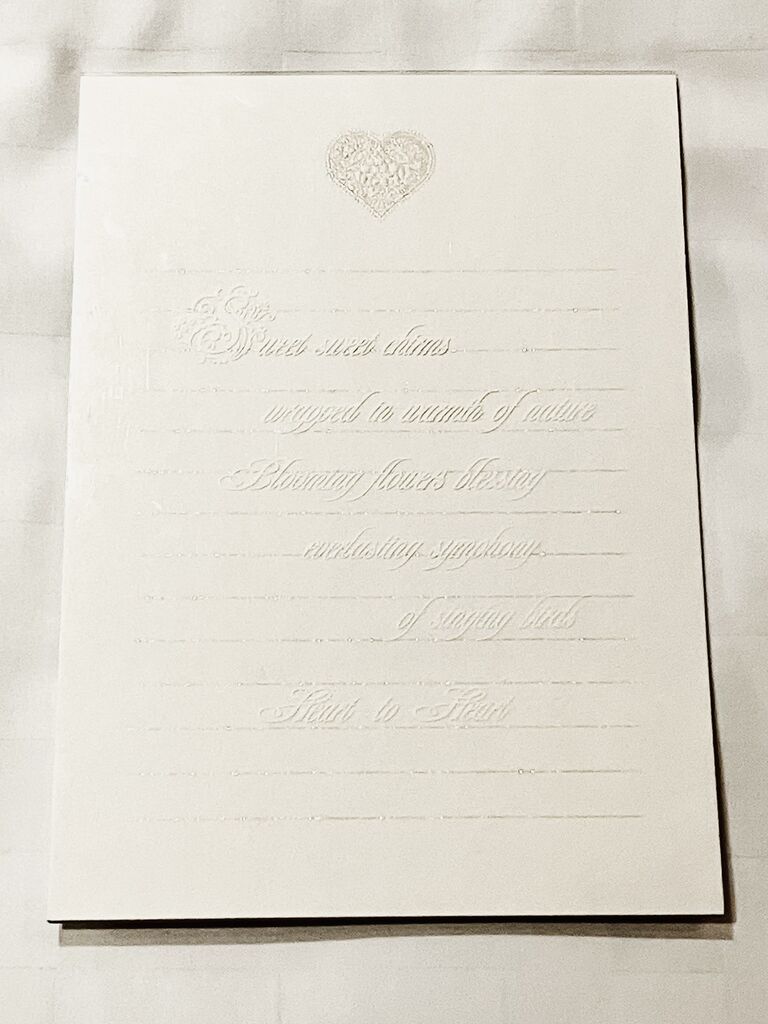 Sweet sweet chims
wrapped in warmth of nature
Blooming flowers blessing
everlasting symphony
of singing birds
Heart to Heart